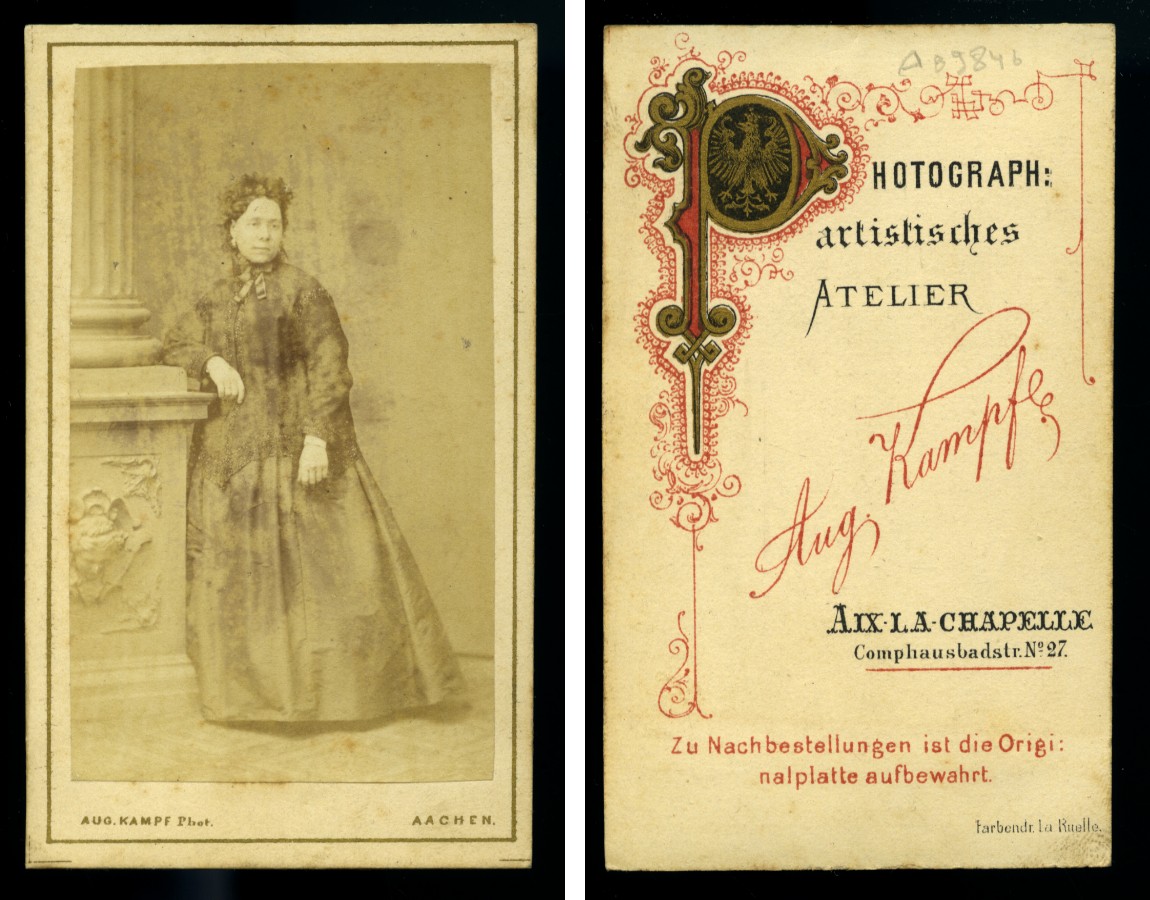 AUG. KAMPF Phot.
AACHEN.
PHOTOGRAPH:
artistisches
ATELIER
Aug. Kampf
AIX-LA-CHAPELLE
Comphausbadstr. No 27.
Zu Nachbestellungen ist die Origi:
nalplatte aufbewahrt.
Farbendr. La Ruelle.